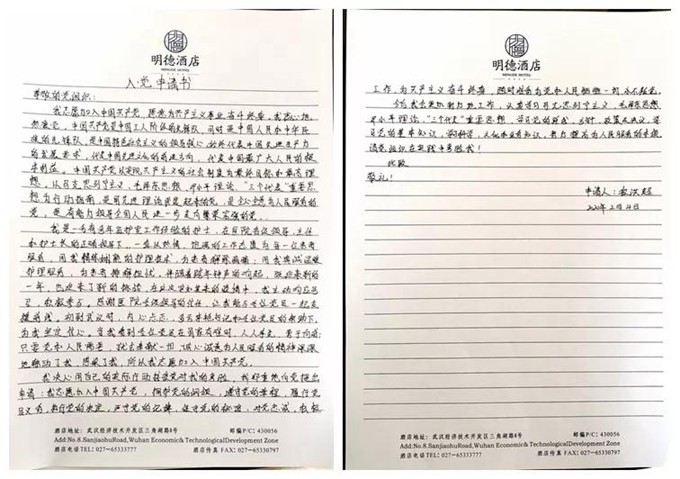 明德酒店
MINGDE HOTEL
入党申请书
敬爱的党组织：
我志愿加入中国共产党，愿意为共产主义事业奋斗终身。我衷心地
热爱党，中国共产党是中国工人阶级的先锋队，同时是中国人民和中华民
族的先锋队，是中国特色社会主义的领导核心，始终代表中国先进生产力
的发展要求，代表中国先进文化的前进方向，代表中国最广大人民的根
本利益。中国共产党以实现共产主义的社会制度为最终目标和最高理
想，以马克思列宁主义、毛泽东思想、邓小平理论、“三个代表”重要思
想为行动指南，是用先进理论武装起来的党，是全心全意为人民服务的
党，是有能力领导全国人民进一步走向繁荣富强的党。
我是一名有
年监护室工作经验的护士，在医院各位领导、主任
和护士长的正确领导下，一直以热情、饱满的工作态度为每一位患者
服务，用我精练娴熟的护理技术，为患者解除病痛；用我真诚温暖
护理服务，为患者排解忧愁。伴随着跨年钟声的响起，既迎来新的
一年，也迎来了新的挑战，在此次
疫情中，我主动响应号
召，积极参与。感谢医院各级领导的信任，让我能与各位党员一起支
援前线。初到武汉时，内心忐忑，
书记和各位党员的帮助下，
为我坚定信心。当我看到各位党员在国家有难时，人人争先，勇于向前
只要党和人民需要，就会奉献一切，诚心诚意为人民服务的精神深深
地触动了我，感染了我，所以我志愿加入中国共产党。
我决心用自己的实际行动接受党对我的考验，我郑重地向党提出
申请：我志愿加入中国共产党，拥护党的纲领，遵守党的章程，履行党
员义务，执行党的决定，严守党的纪律，保守党的秘密，对党忠诚，积极
酒店地址：武汉经济技术开发区三角湖路8号 邮编P/C：430056
Add:No.8.SanjiaohuRoad,Wuhan Economic&TechnologicalDevelopment Zone
酒店电话TEL：027-65333777 酒店传真 FAX：027-65330797
明德酒店
MINGDE HOTEL
工作，为共产主义奋斗终身，随时准备为党和人民牺牲一切，永不叛党。
今后我会更加努力地工作，认真学习马克思列宁主义、毛泽东思想、
邓小平理论、“三个代表”重要思想，学习党的路线、方针、政策及决议，学
习党的基本知识，学习科学、文化和业务知识，努力提高为人民服务的本领
请党组织在实践中考验我！
此致
敬礼！
申请人：
2020年2月
日
酒店地址：武汉经济技术开发区三角湖路8号 邮编P/C：430056
Add:No.8.SanjiaohuRoad,Wuhan Economic&TechnologicalDevelopment Zone
酒店电话TEL：027-65333777 酒店传真 FAX：027-65330797